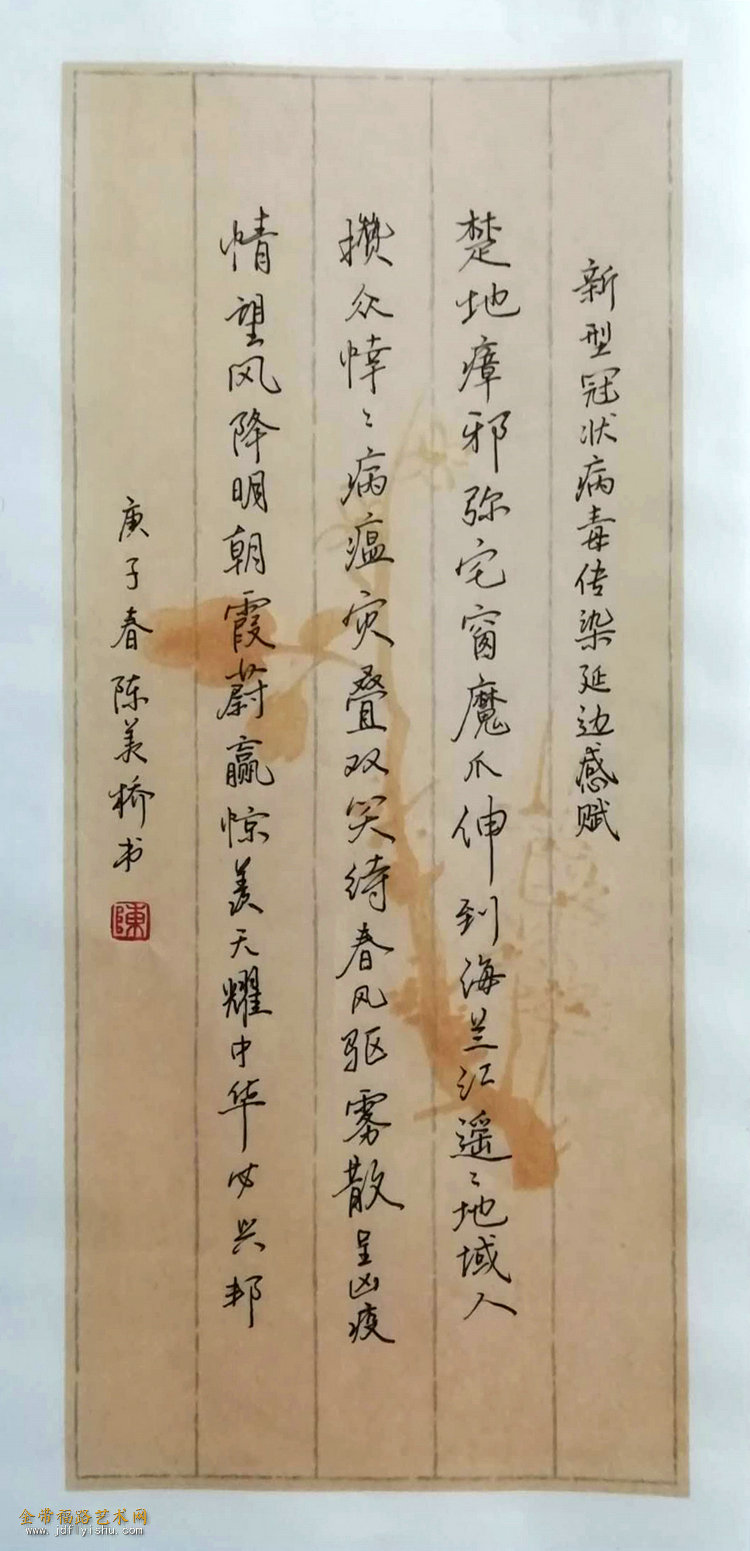 新型冠状病毒传染延边感赋
楚地瘴邪弥宅窗魔爪伸到海兰江遥〻地域人
攒众悻〻病瘟灾叠双笑待春风驱雾散呈凶疫
情望风降明朝霞蔚赢惊羡天耀中华必兴邦
庚子春陈美桥书
陳
金带福路艺术网
www.jdflyishu.com